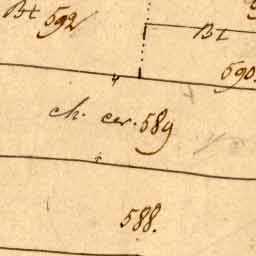 Bt 592
Bt
590.
ch. cer. 589
588.